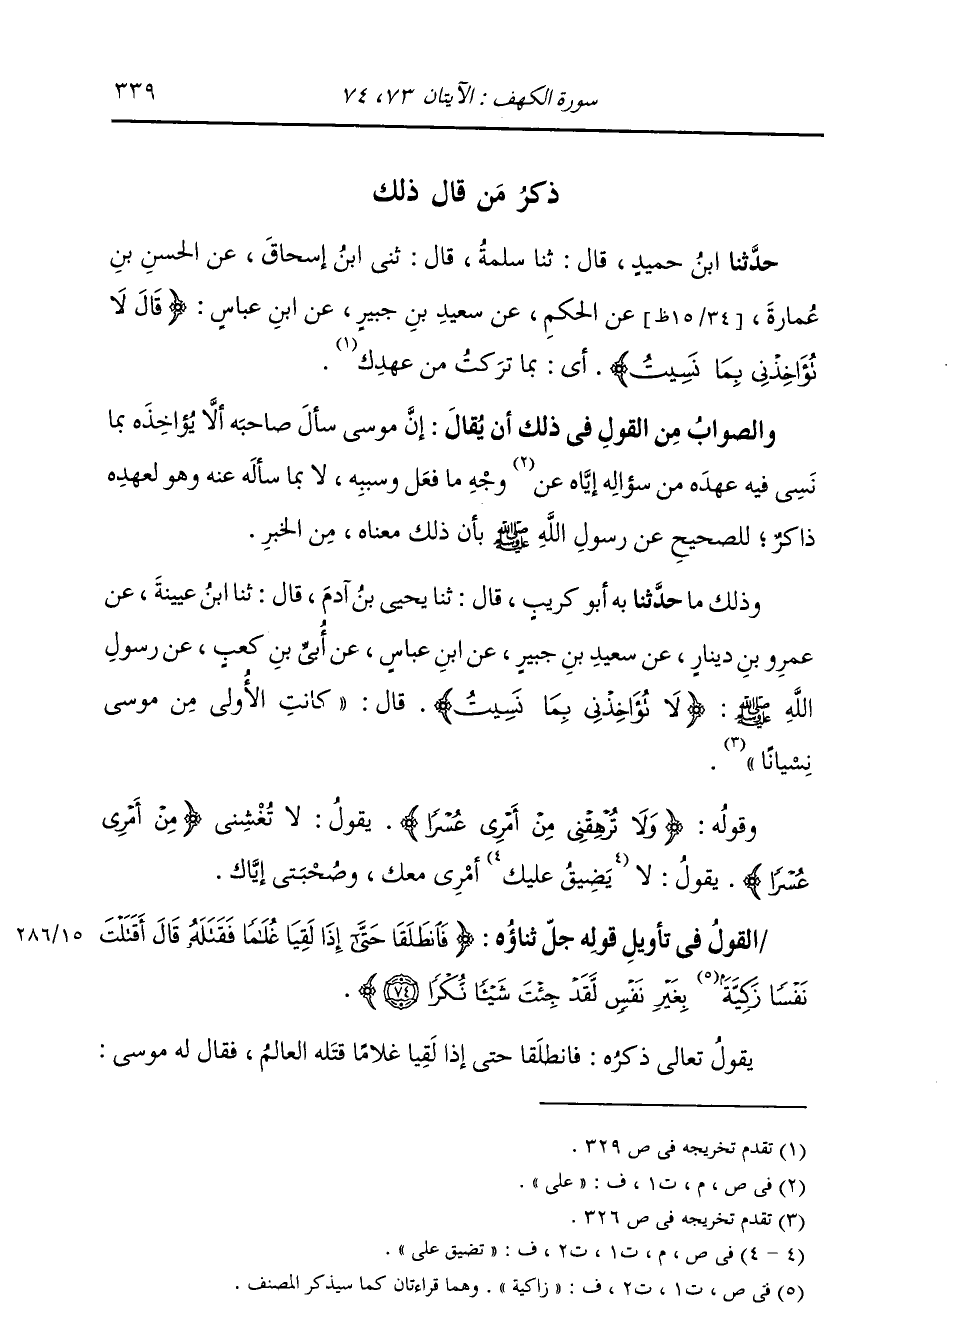 سورة الكهف : الآيتان ٧٣، ٧٤
٣٣٩
ذكرُ مَن قال ذلك
حدَّثنا ابنُ حميدٍ ، قال : ثنا سلمةُ ، قال : ثنى ابنُ إسحاقَ ، عن الحسنِ بنِ
عُمارةَ ، [١٥/٣٤ظ] عن الحكمِ ، عن سعيدِ بنِ جبيرٍ ، عن ابنِ عباسٍ : ﴿قَالَ لَا
نُؤَاخِذْنِى بِمَا نَسِيتُ﴾ . أى : بما تركتُ من عهدِك(١) .
والصوابُ مِن القولِ فى ذلك أن يُقالَ : إنَّ موسى سألَ صاحبَه ألَّا يُؤاخِذَه بما
نَسِى فيه عهدَه من سؤالِه إيَّاه عن(٢) وجْهِ ما فعَل وسببِه ، لا بما سألَه عنه وهو لعهدِه
ذاكرٌ ؛ للصحيحِ عن رسولِ اللَّهِ ﷺ بأن ذلك معناه ، مِن الخبرِ .
وذلك ما حدَّثنا به أبو كريبٍ ، قال : ثنا يحيى بنُ آدمَ ، قال : ثنا ابنُ عيينةَ ، عن
عمرِو بنِ دينارٍ ، عن سعيدِ بنِ جبيرٍ ، عن ابنِ عباسٍ ، عن أُبىِّ بنِ كعبٍ ، عن رسولِ
اللَّهِ ﷺ : ﴿لَا نُؤَاخِذْنِى بِمَا نَسِيتُ﴾ . قال : « كانتِ الأُولى مِن موسى
نِسْيانًا »(٣) .
وقولُه : ﴿وَلَا تُرْهِقْنِى مِنْ أَمْرِى عُسْرًا﴾ . يقولُ : لا تُغْشِنى ﴿مِنْ أَمْرِى
عُسْرًا﴾ . يقولُ : لا (٤يَضِيقُ عليك٤) أمْرِى معك ، وصُحْبَتى إيَّاك .
/القولُ فى تأويلِ قولِه جلّ ثناؤُه : ﴿ فَٱنطَلَقَا حَتَّىٰٓ إِذَا لَقِيَا غُلَـٰمًا فَقَتَلَهُۥ قَالَ أَقَتَلْتَ ٢٨٦/١٥
نَفْسًا زَكِيَّةًۢ(٥) بِغَيْرِ نَفْسٍ لَّقَدْ جِئْتَ شَيْـًٔا نُّكْرًا ٧٤ ﴾ .
يقولُ تعالى ذكرُه : فانطلَقا حتى إذا لَقِيا غلامًا قتَله العالمُ ، فقال له موسى :
(١) تقدم تخريجه فى ص ٣٢٩ .
(٢) فى ص ، م ، ت١ ، ف : « على » .
(٣) تقدم تخريجه فى ص ٣٢٦ .
(٤ - ٤) فى ص ، م ، ت١ ، ت٢ ، ف : « تضيق على » .
(٥) فى ص ، ت١ ، ت٢ ، ف : « زاكية » . وهما قراءتان كما سيذكر المصنف .